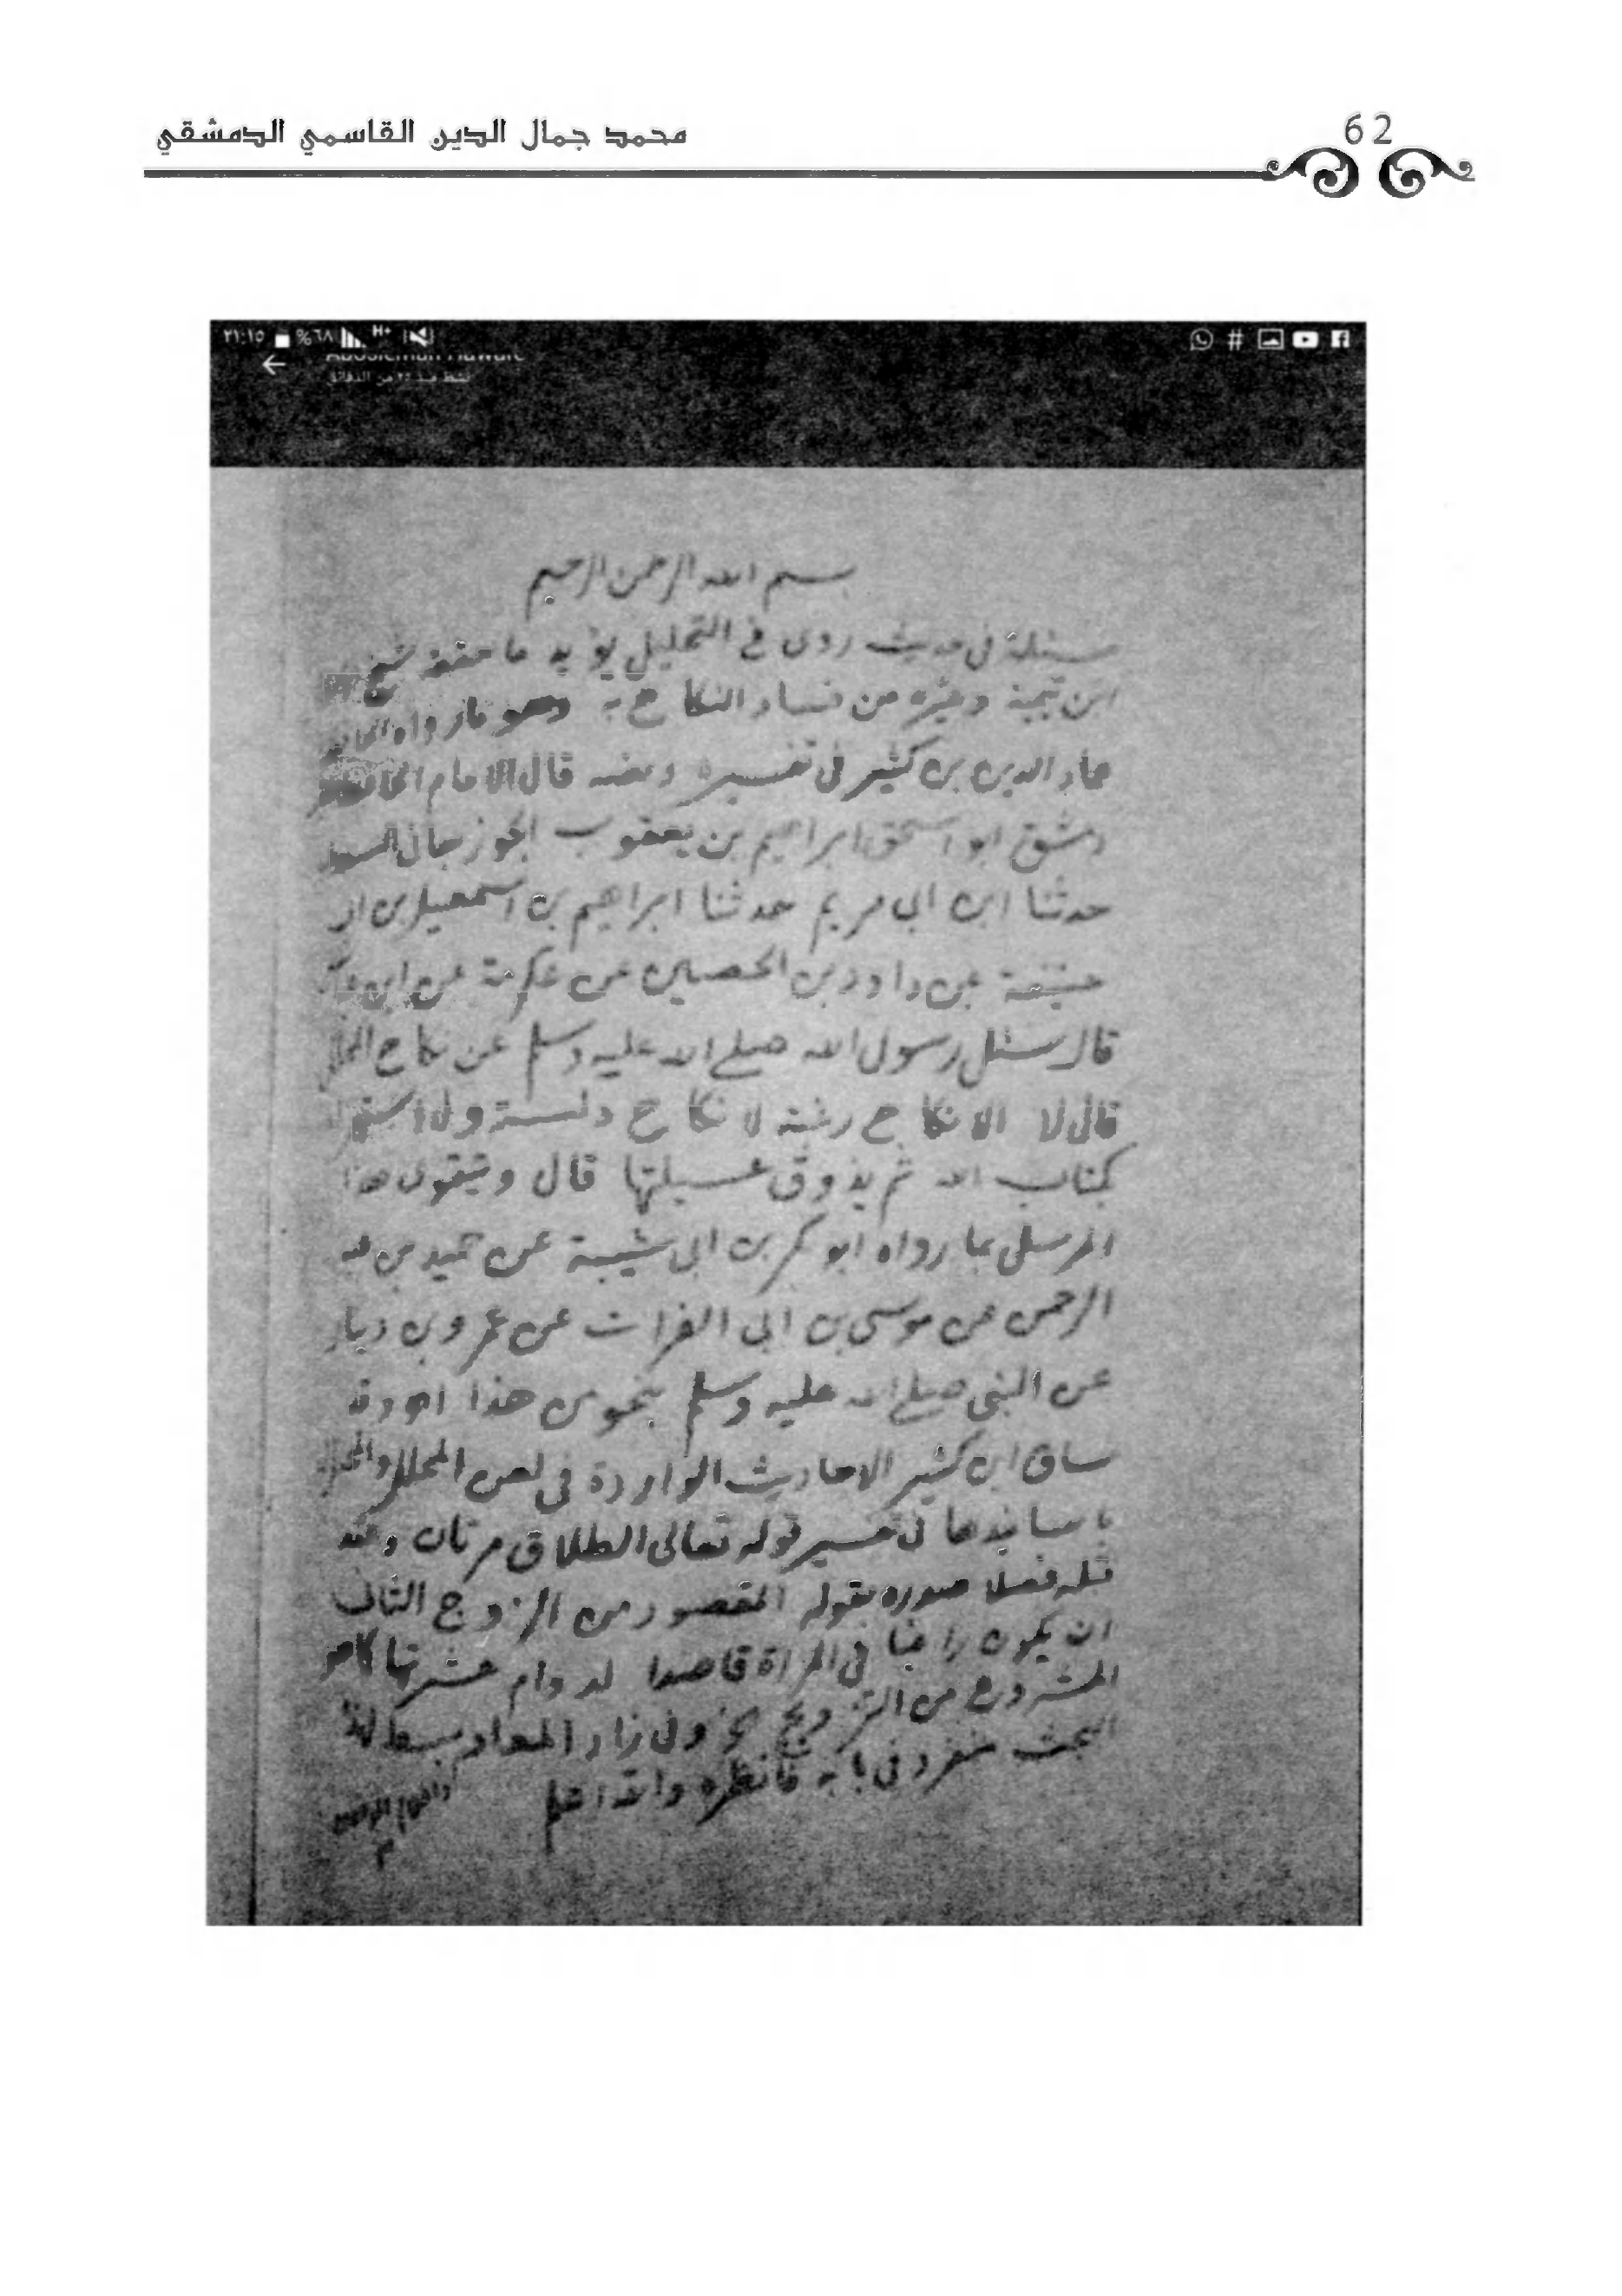 62
محمد جمال الدين القاسمي الدمشقي
٢١:١٥ %٦٨ H+
نشط منذ ٢٥ من الدقائق
بسم الله الرحمن الرحيم
مسئلة في حديث روى في التحليل يؤيد ما حققه شيخ
ابن تيمية وغيره من فساد النكاح به وهو ما رواه الحافظ
عماد الدين بن كثير في تفسيره ونصه قال الامام
دمشق ابو اسحق ابراهيم بن يعقوب الجوزجاني السعدي
حدثنا ابن ابي مريم حدثنا ابراهيم بن اسمعيل بن ابي
حنيفة عن داود بن الحصين عن عكرمة عن ابن
قال سئل رسول الله صلى الله عليه وسلم عن نكاح المحلل
قال لا الا نكاح رغبة لا نكاح دلسة ولا
كتاب الله ثم يذوق عسيلتها قال ويتقوى هذا
المرسل بما رواه ابو بكر بن ابي شيبة عن حميد بن عبد
الرحمن عن موسى بن ابي الفرات عن عمرو بن دينار
عن النبي صلى الله عليه وسلم بنحو من هذا اهـ وقد
ساق ابن كثير الاحاديث الواردة في لعن المحلل والمحلل
باسانيدها في تفسير قوله تعالى الطلاق مرتان وعقد
قبله فصلا صدره بقوله المقصود من الزوج الثاني
ان يكون راغبا في المرأة قاصدا لدوام عشرتها كما هو
المشروع من التزويج الخ وفي زاد المعاد بسط لهذا
البحث منفرد في بابه فانظره والله اعلم